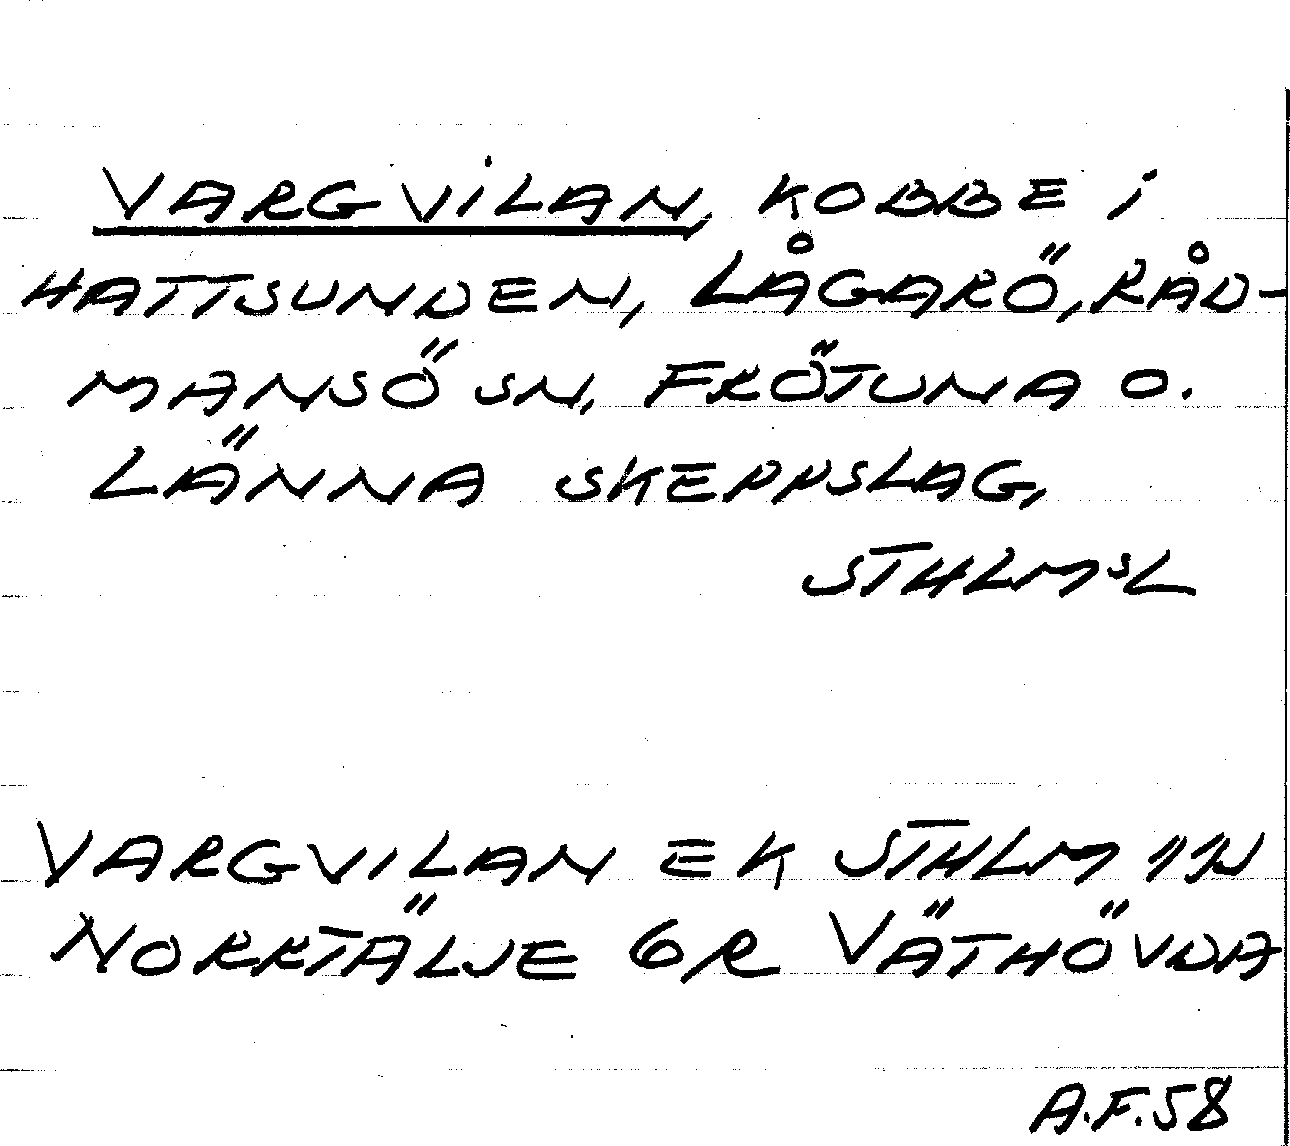 VARGVILAN, KOBBE i
HATTSUNDEN, LÅGARÖ, RÅD-
MANSÖ SN, FRÖTUNA O.
LÄNNA SKEPPSLAG,
STHLMSL
VARGVILAN EK STHLM 11J
NORRTÄLJE 6R VÄTHÖVDA
A.F.58